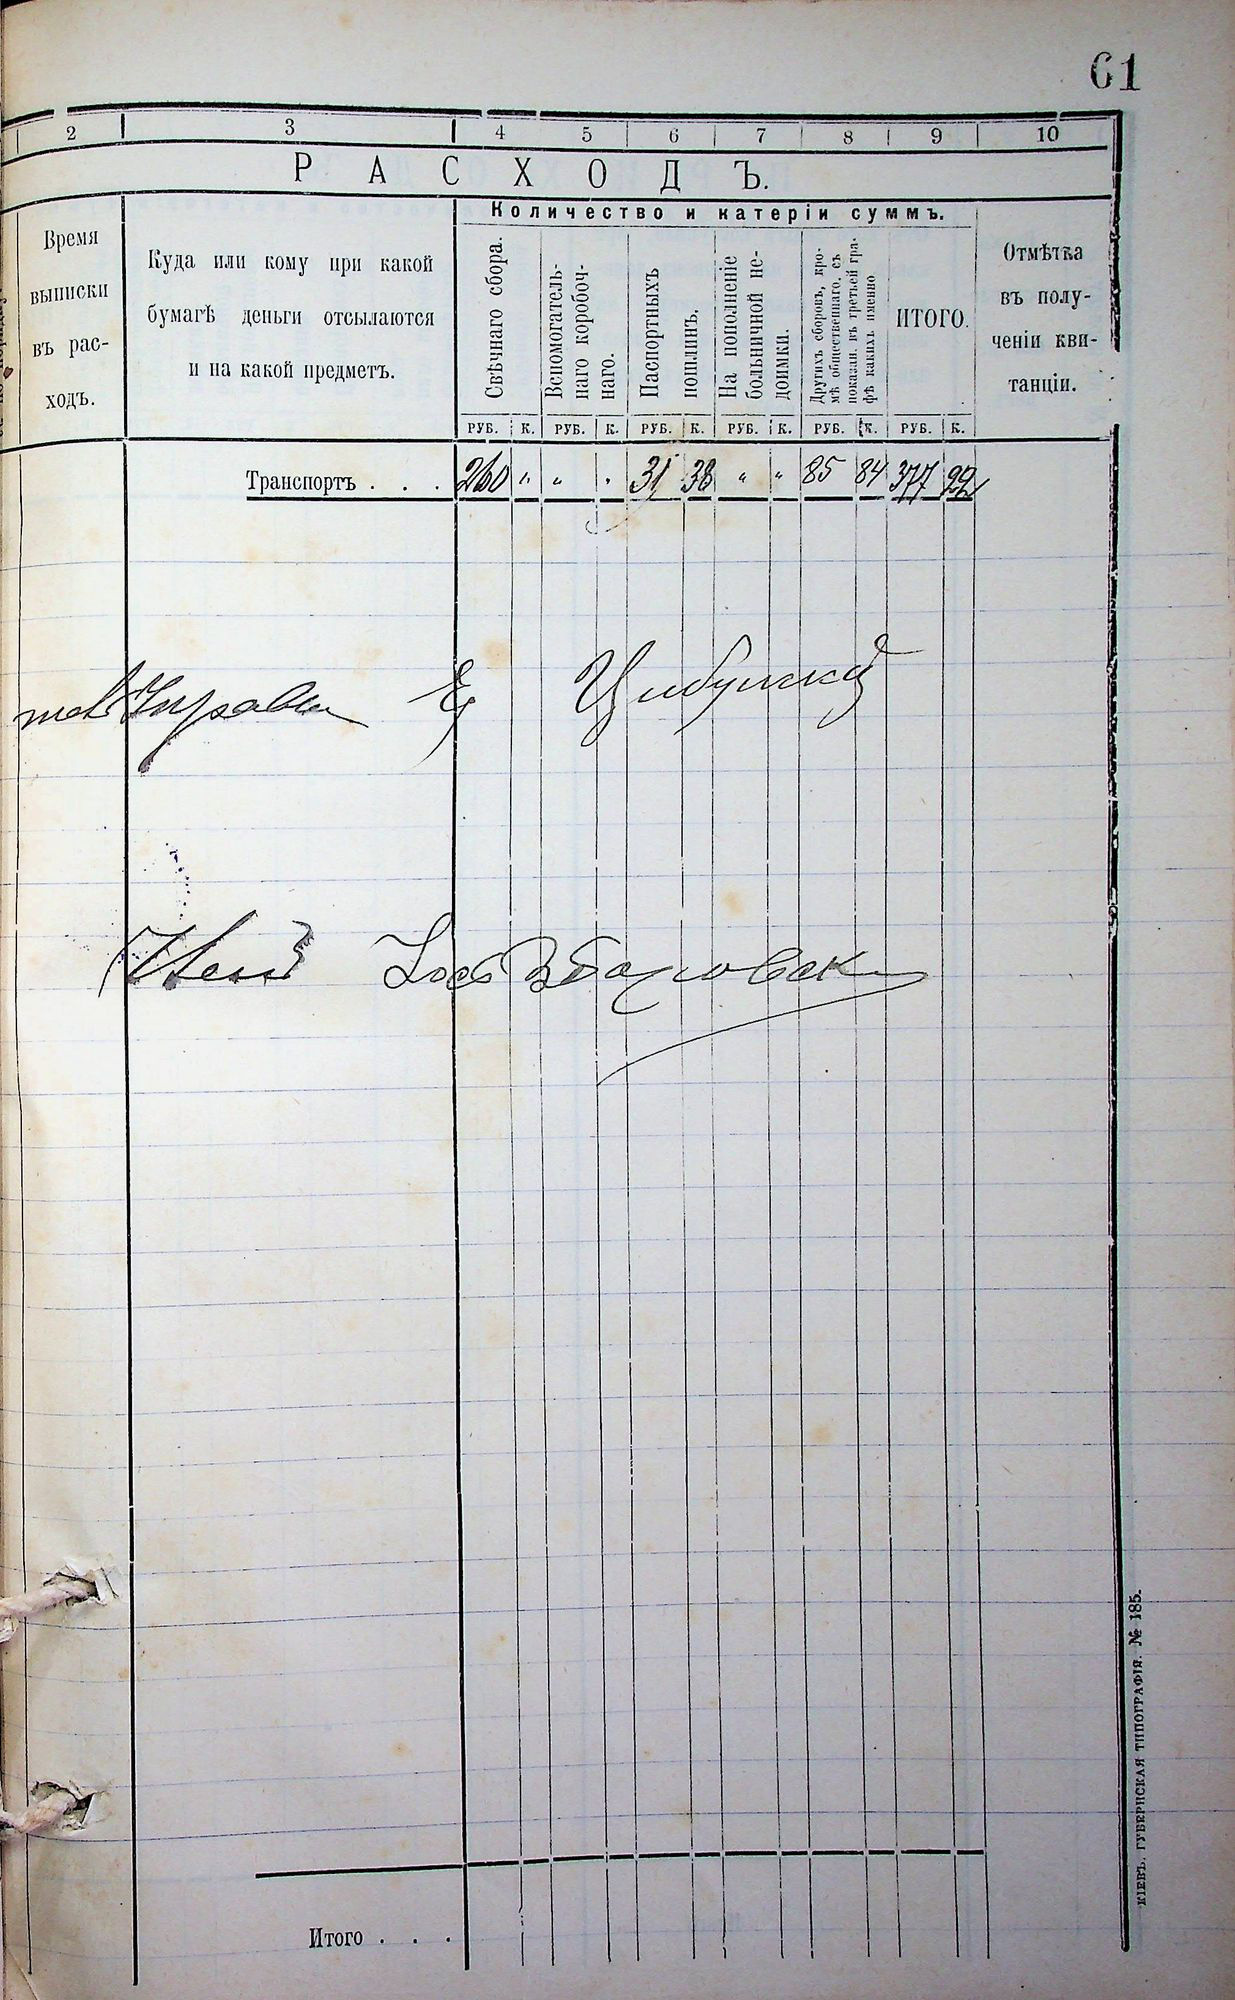 61
2 3 4 5 6 7 8 9 10
РАСХОДЪ.
Количество и катеріи суммъ.
Время
выписки
въ рас-
ходъ.
Куда или кому при какой
бумагѣ деньги отсылаются
и на какой предметъ.
Свѣчнаго сбора.
Вспомогатель-
наго коробоч-
наго.
Паспортныхъ
пошлинъ.
На пополненіе
больничной не-
доимки.
Другихъ сборовъ, кро-
мѣ общественнаго, съ
показан. въ третьей гра-
фѣ какихъ именно
ИТОГО.
Отмѣтка
въ полу-
ченіи кви-
танціи.
РУБ. К. РУБ. К. РУБ. К. РУБ. К. РУБ. К. РУБ. К.
Транспортъ . . . 260 " " " 31 38 " " 85 84 377 22
Управы
Итого . . .
КІЕВЪ. ГУБЕРНСКАЯ ТИПОГРАФІЯ. № 185.